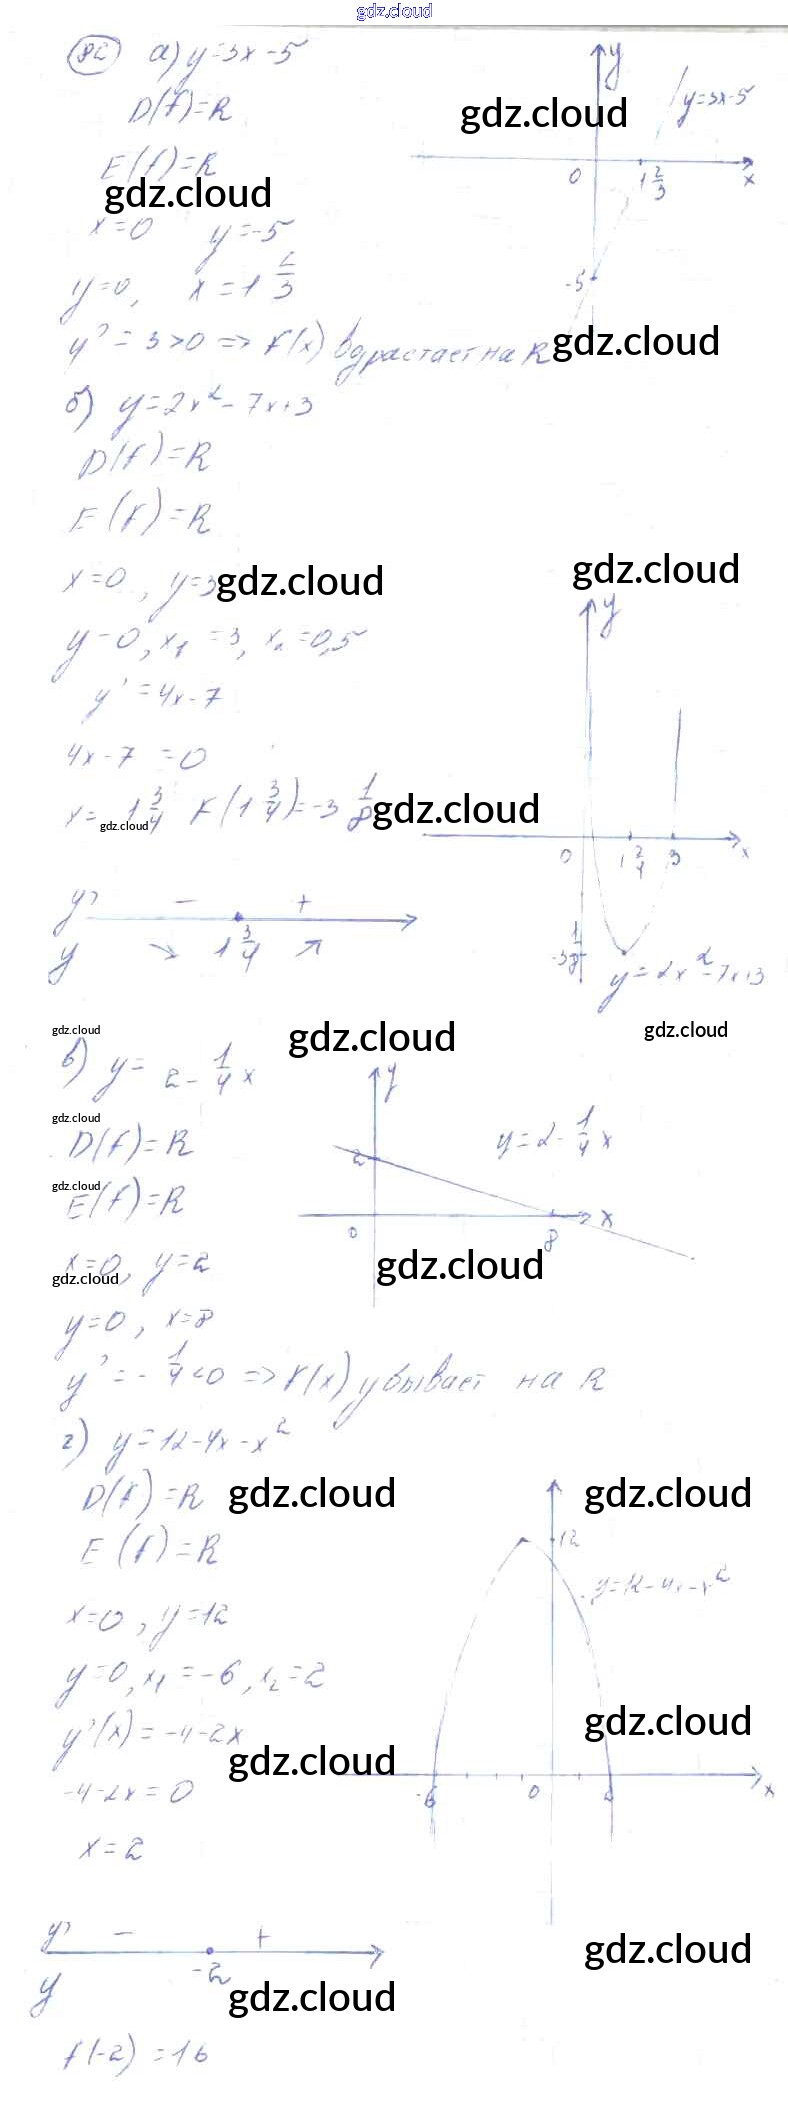 gdz.cloud
82 а) y=3x-5
D(f)=R
E(f)=R
gdz.cloud
x=0 y=-5
y=0, x=1 2/3
y'=3>0 => f(x) возрастает на R
y
gdz.cloud
y=3x-5
0 1 2/3 x
-5
gdz.cloud
б) y=2x²-7x+3
D(f)=R
E(f)=R
x=0, y=3
gdz.cloud
gdz.cloud
y=0, x₁=3, x₂=0,5
y'=4x-7
4x-7=0
x= 1 3/4 f(1 3/4)=-3 1/8
gdz.cloud
gdz.cloud
y' - +
y 1 3/4
y
0 1 2/4 3 x
-3 1/8
y=2x²-7x+3
gdz.cloud
gdz.cloud
gdz.cloud
в) y= 2-1/4 x
gdz.cloud
D(f)=R
gdz.cloud
E(f)=R
x=0, y=2
gdz.cloud
y=0, x=8
y'=-1/4<0 => f(x) убывает на R
y
y=2-1/4 x
2
0 8 x
gdz.cloud
г) y=12-4x-x²
D(f)=R
gdz.cloud
gdz.cloud
E(f)=R
x=0, y=12
y=0, x₁=-6, x₂=2
y'(x)=-4-2x
gdz.cloud
-4-2x=0
x=2
12
y=12-4x-x²
gdz.cloud
-6 0 2 x
y' - +
-2
y
gdz.cloud
gdz.cloud
f(-2)=16